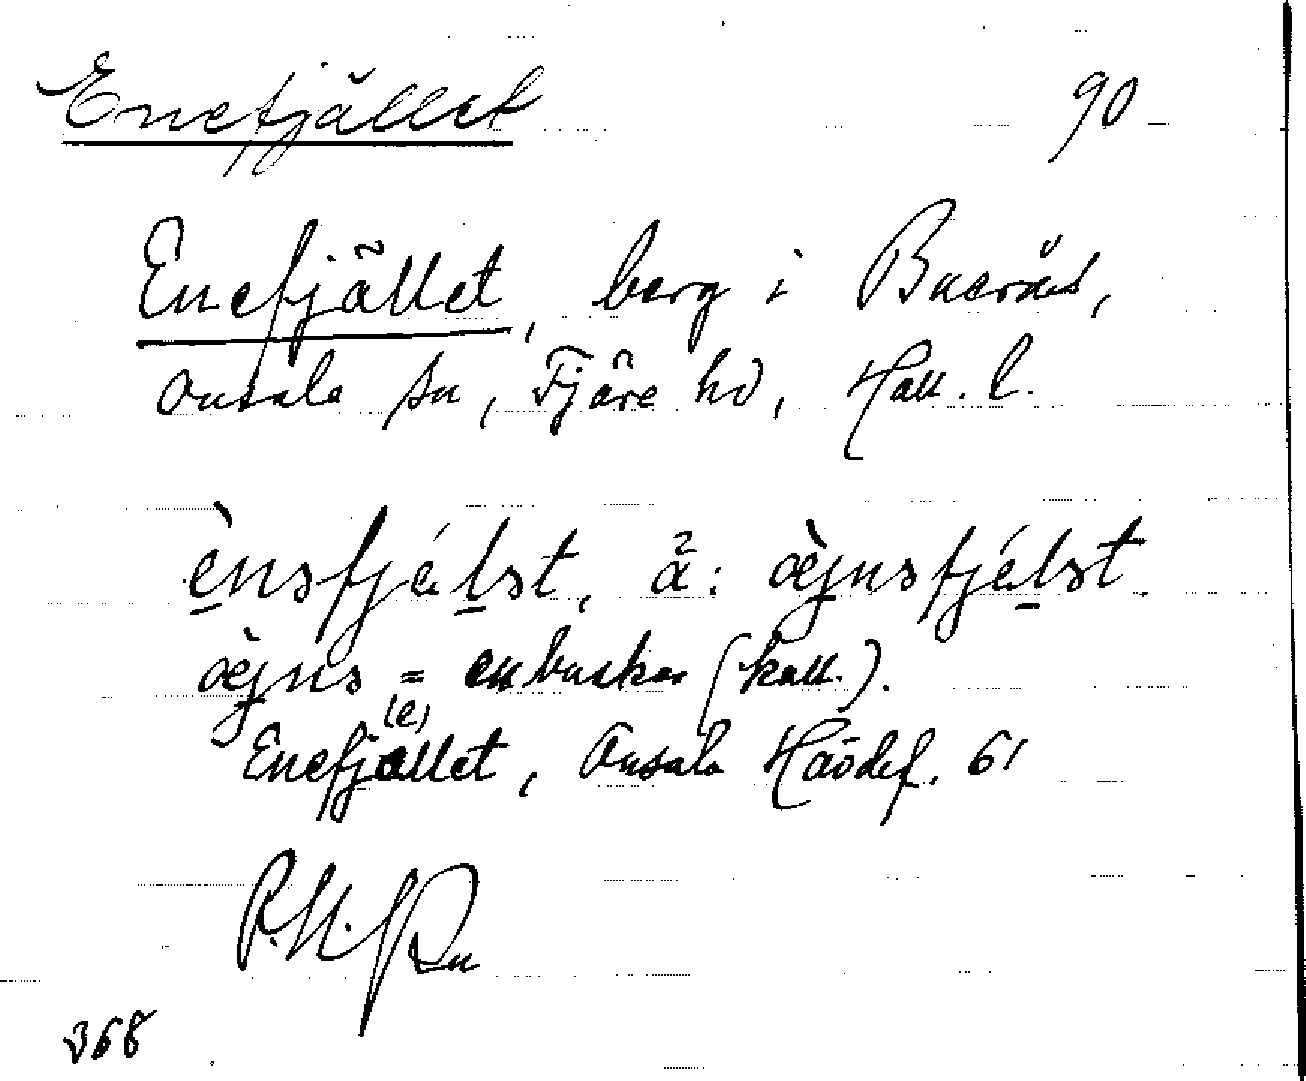 Enefjället 90
Enefjället, berg i Buerås,
Onsala sn, Fjäre hd, Hall. l.
ènsfjélst, ä: æ̀jnsfjélst
æ̀jns = enbuskar (koll.).
(e)
Enefjället, Onsala Håödef. 61
368